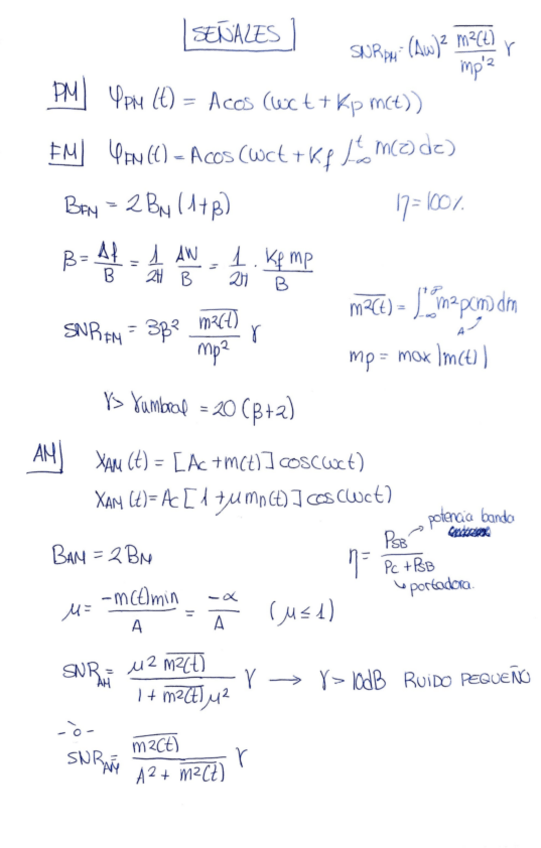 SEÑALES
SNR_PM = (Δω)² \overline{m²(t)} / mp'² γ
PM φ_PM (t) = A cos (ωc t + Kp m(t))
FM φ_FM (t) = A cos (ωc t + Kf ∫_{-∞}^{t} m(z) dz)
B_FM = 2 B_N (1+β)
η = 100%
β = Δf / B = 1/2π Δw / B = 1/2π · Kf mp / B
\overline{m²(t)} = ∫_{-∞}^{+∞} m² p(m) dm
A
SNR_FM = 3β² \overline{m²(t)} / mp² γ
mp = max |m(t)|
γ > γumbral = 20 (β+2)
AM X_AM (t) = [Ac + m(t)] cos(ωc t)
X_AM (t) = Ac [1 + μ mn(t)] cos(ωc t)
potencia banda
B_AM = 2 B_N
η = P_SB / Pc + P_SB
portadora.
μ = -m(t)min / A = -α / A (μ ≤ 1)
SNR_AM = μ² \overline{m²(t)} / 1 + \overline{m²(t)} μ² γ → γ > 10dB RUIDO PEQUEÑO
-ò-
SNR_AM = \overline{m²(t)} / A² + \overline{m²(t)} γ